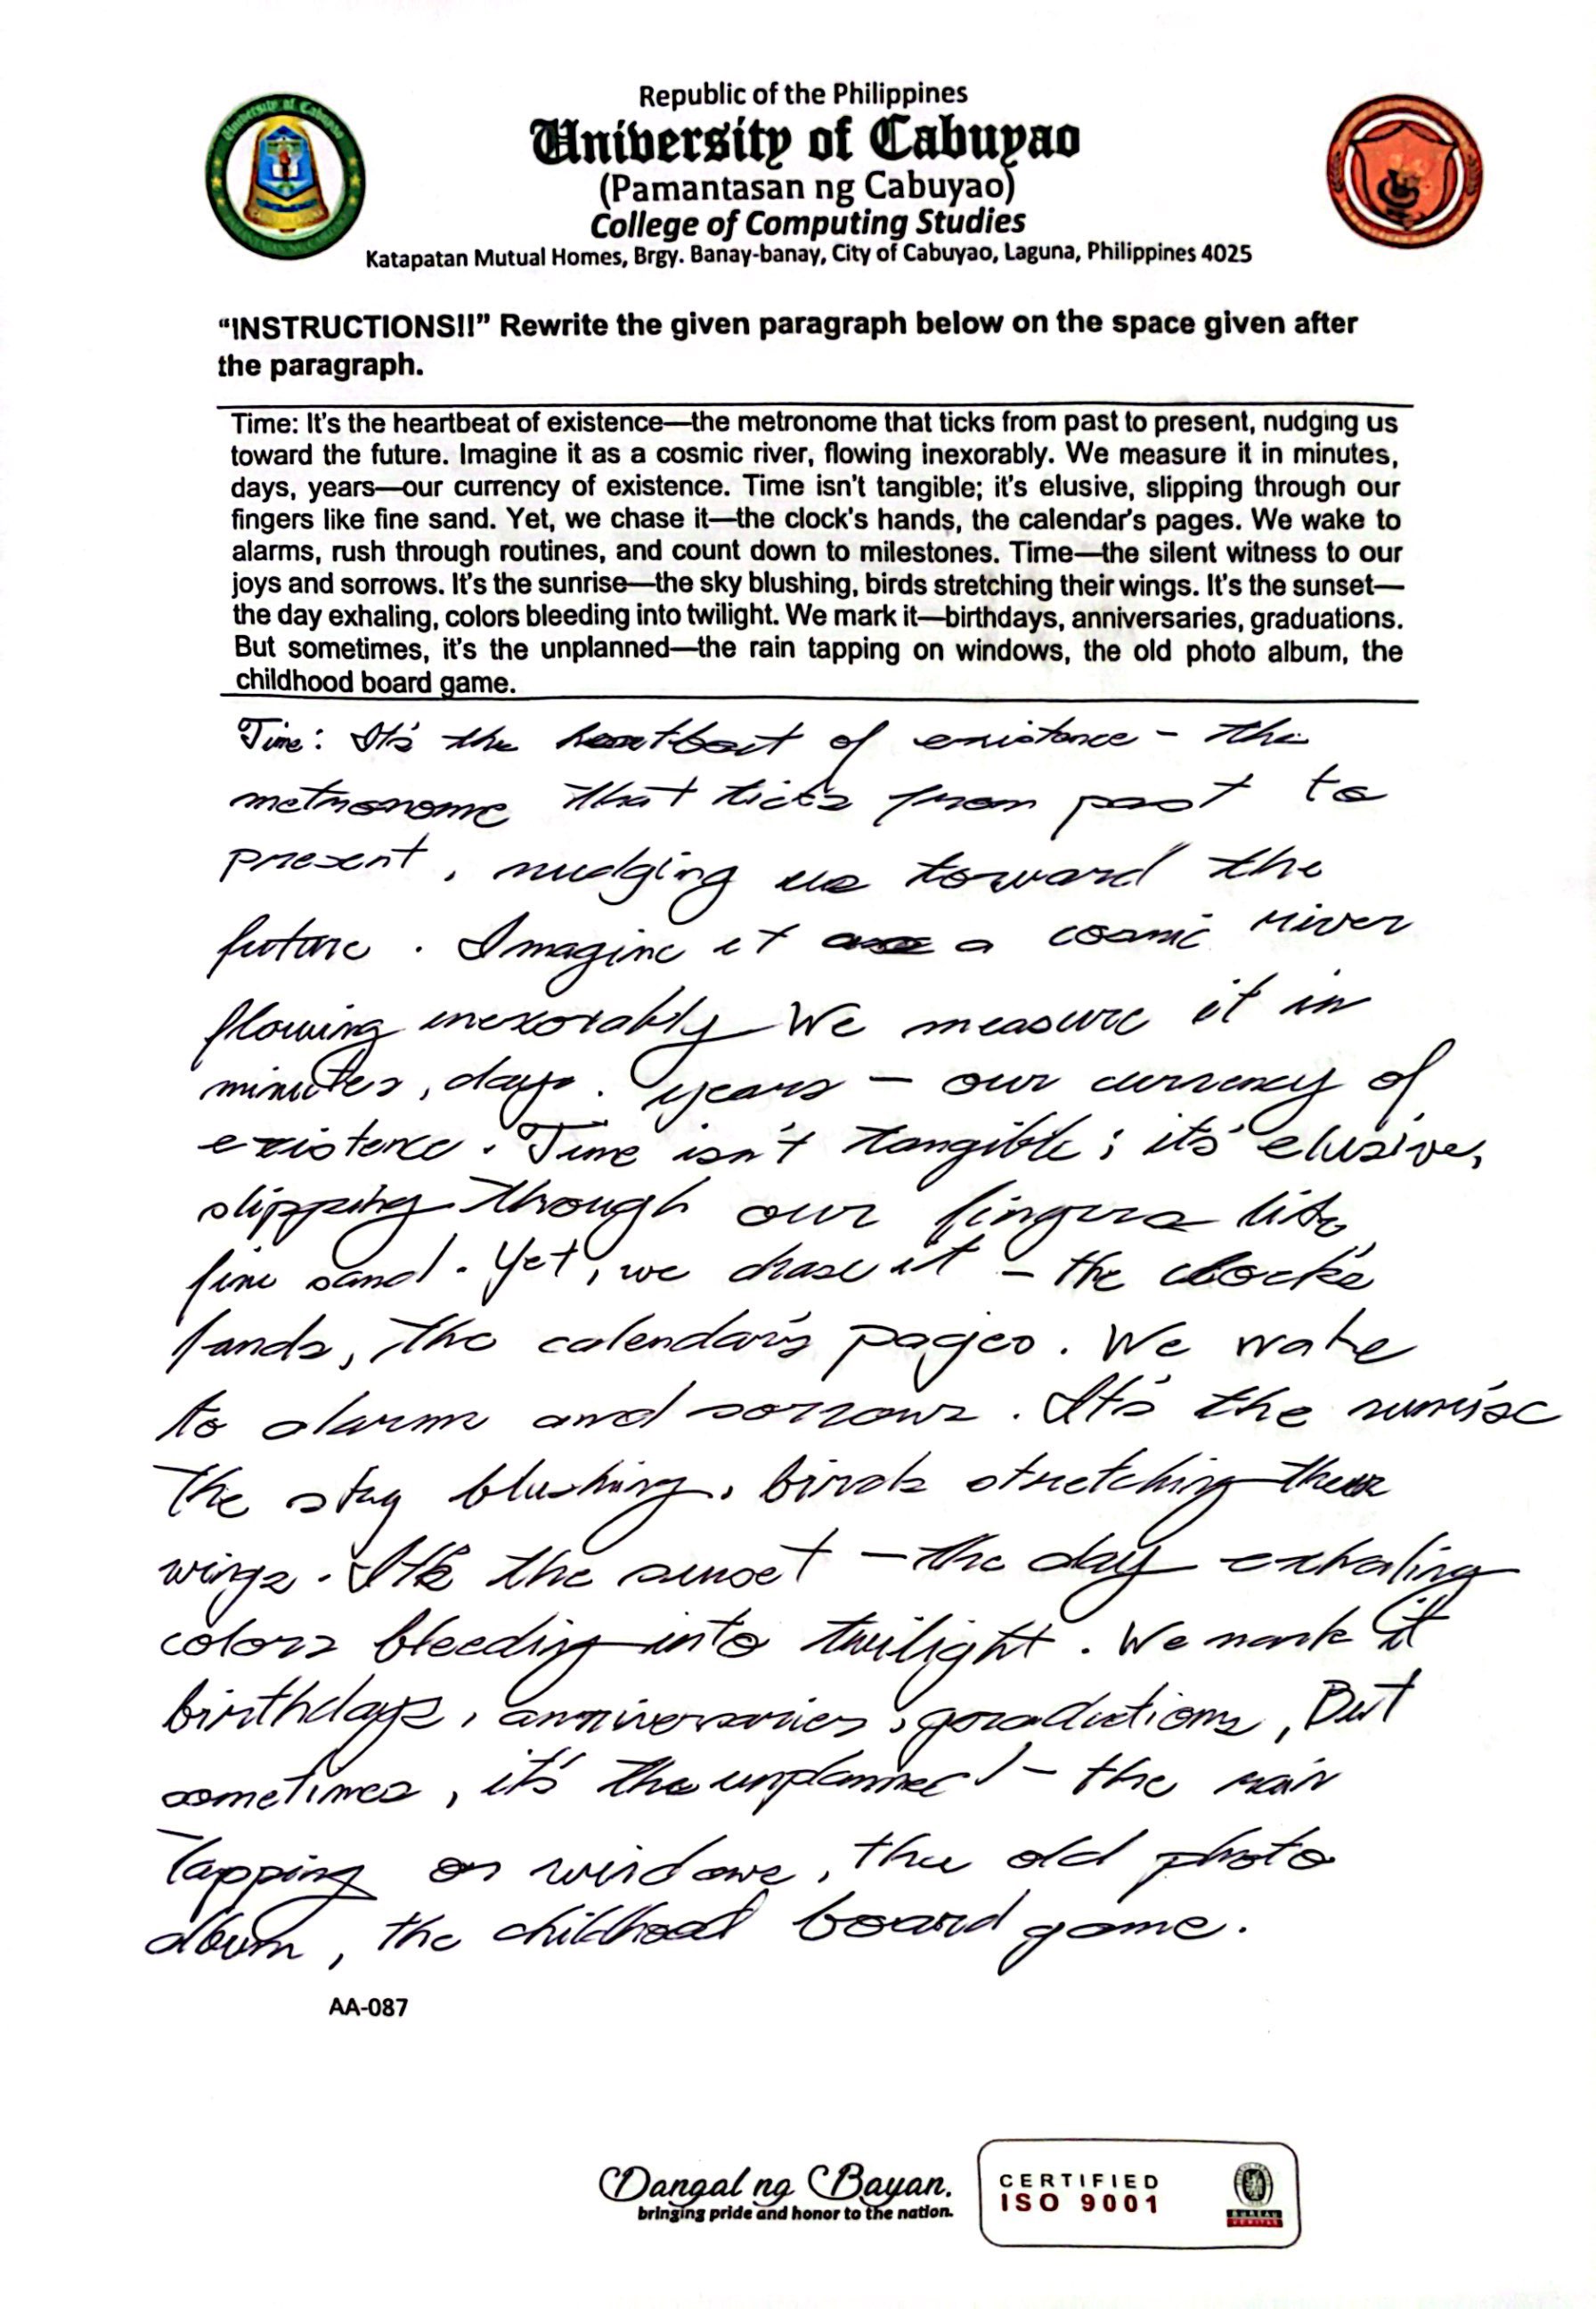 Republic of the Philippines
University of Cabuyao
(Pamantasan ng Cabuyao)
College of Computing Studies
Katapatan Mutual Homes, Brgy. Banay-banay, City of Cabuyao, Laguna, Philippines 4025
“INSTRUCTIONS!!” Rewrite the given paragraph below on the space given after
the paragraph.
Time: It's the heartbeat of existence—the metronome that ticks from past to present, nudging us
toward the future. Imagine it as a cosmic river, flowing inexorably. We measure it in minutes,
days, years—our currency of existence. Time isn't tangible; it's elusive, slipping through our
fingers like fine sand. Yet, we chase it—the clock's hands, the calendar's pages. We wake to
alarms, rush through routines, and count down to milestones. Time—the silent witness to our
joys and sorrows. It's the sunrise—the sky blushing, birds stretching their wings. It's the sunset—
the day exhaling, colors bleeding into twilight. We mark it—birthdays, anniversaries, graduations.
But sometimes, it's the unplanned—the rain tapping on windows, the old photo album, the
childhood board game.
Time: It's the heartbeat of existence - the
metronome that ticks from past to
present, nudging us toward the
future. Imagine it a cosmic river
flowing inexorably We measure it in
minutes, days. years - our currency of
existence. Time isn't tangible; its' elusive,
slipping through our fingers like
fine sand. Yet, we chase it - the clock's
hands, the calendar's pages. We wake
to alarms and sorrows. It's the sunrise
the sky blushing, birds stretching their
wings. It's the sunset - the day exhaling
colors bleeding into twilight. We mark it
birthdays, anniversaries, graductions, But
sometimes, it's the unplanned - the rain
tapping on windows, the old photo
album, the childhood board game.
AA-087
Dangal ng Bayan.
bringing pride and honor to the nation.
CERTIFIED
ISO 9001
BUREAU
VERITAS